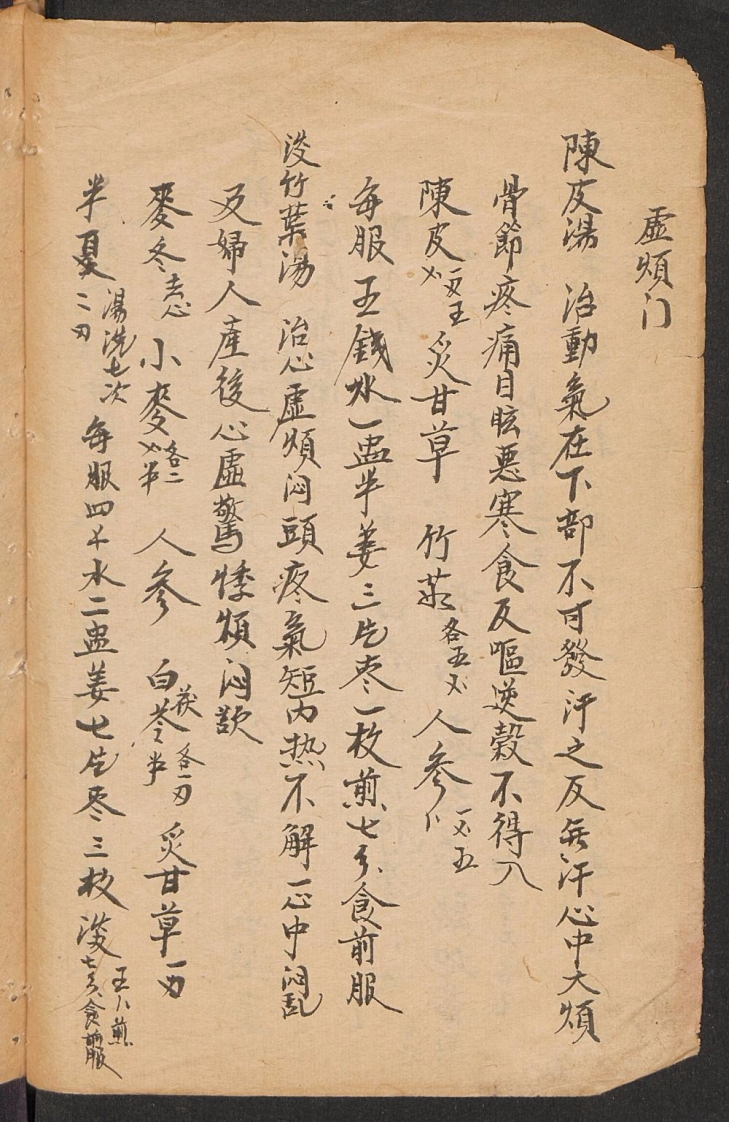 虛煩门
陳皮湯 治動氣在下部不可發汗之反無汗心中大煩
骨節疼痛目眩惡寒食反嘔逆穀不得入
陳皮 炙甘草 竹茹各五 人參
每服五錢水一盅半姜三片枣一枚煎七分食前服
淡竹葉湯 治心虛煩闷頭疼氣短内热不解心中闷乱
及婦人產後心虛驚悸煩闷欬
麥冬去心 小麥各二 半 人參 白茯苓各一刄半 炙甘草一刄
半夏二刄湯洗七次 每服四千水二盅姜七片枣三枚淡 煎七分食前服